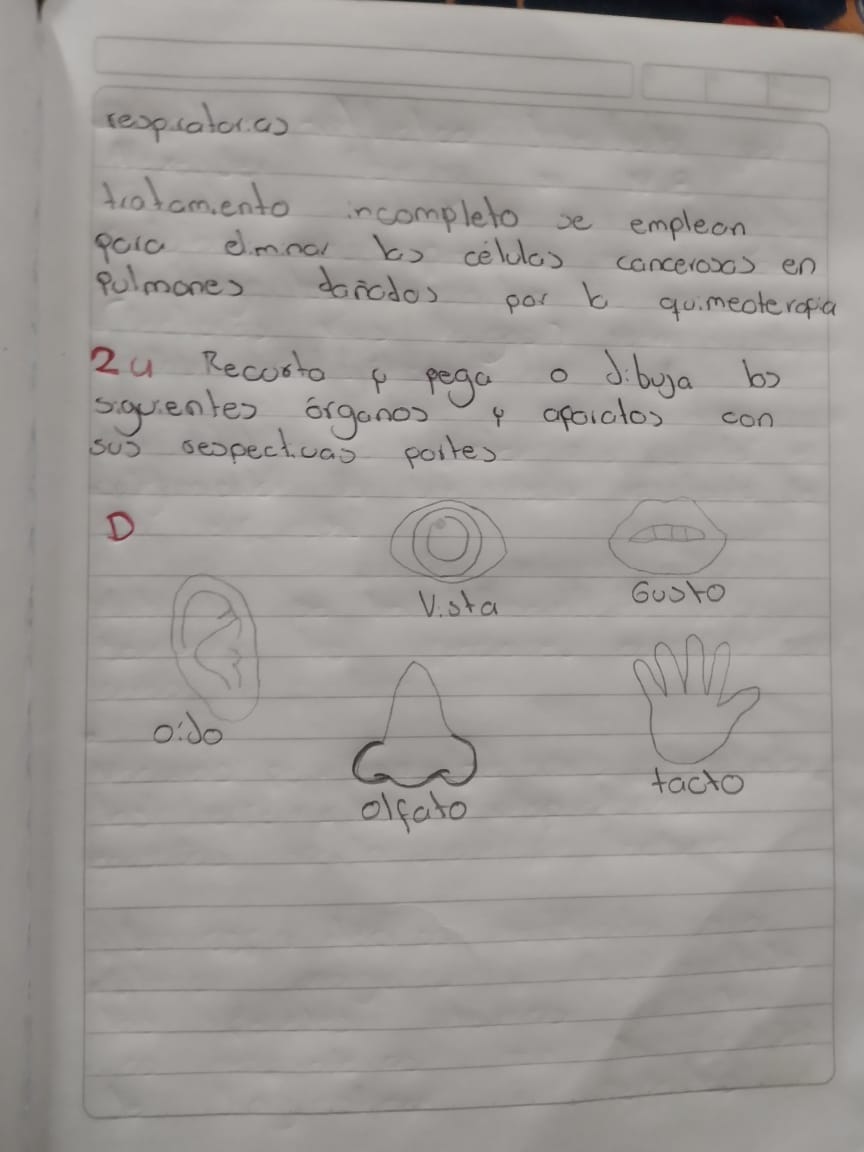 respiratorias
tratamiento incompleto se emplean
para eliminar las células cancerosas en
Pulmones dañados por la quimeoterapia
24 Recorta y pega o dibuja los
siguientes órganos y aparatos con
sus respectivas partes
D
Vista
Gusto
oido
olfato
tacto